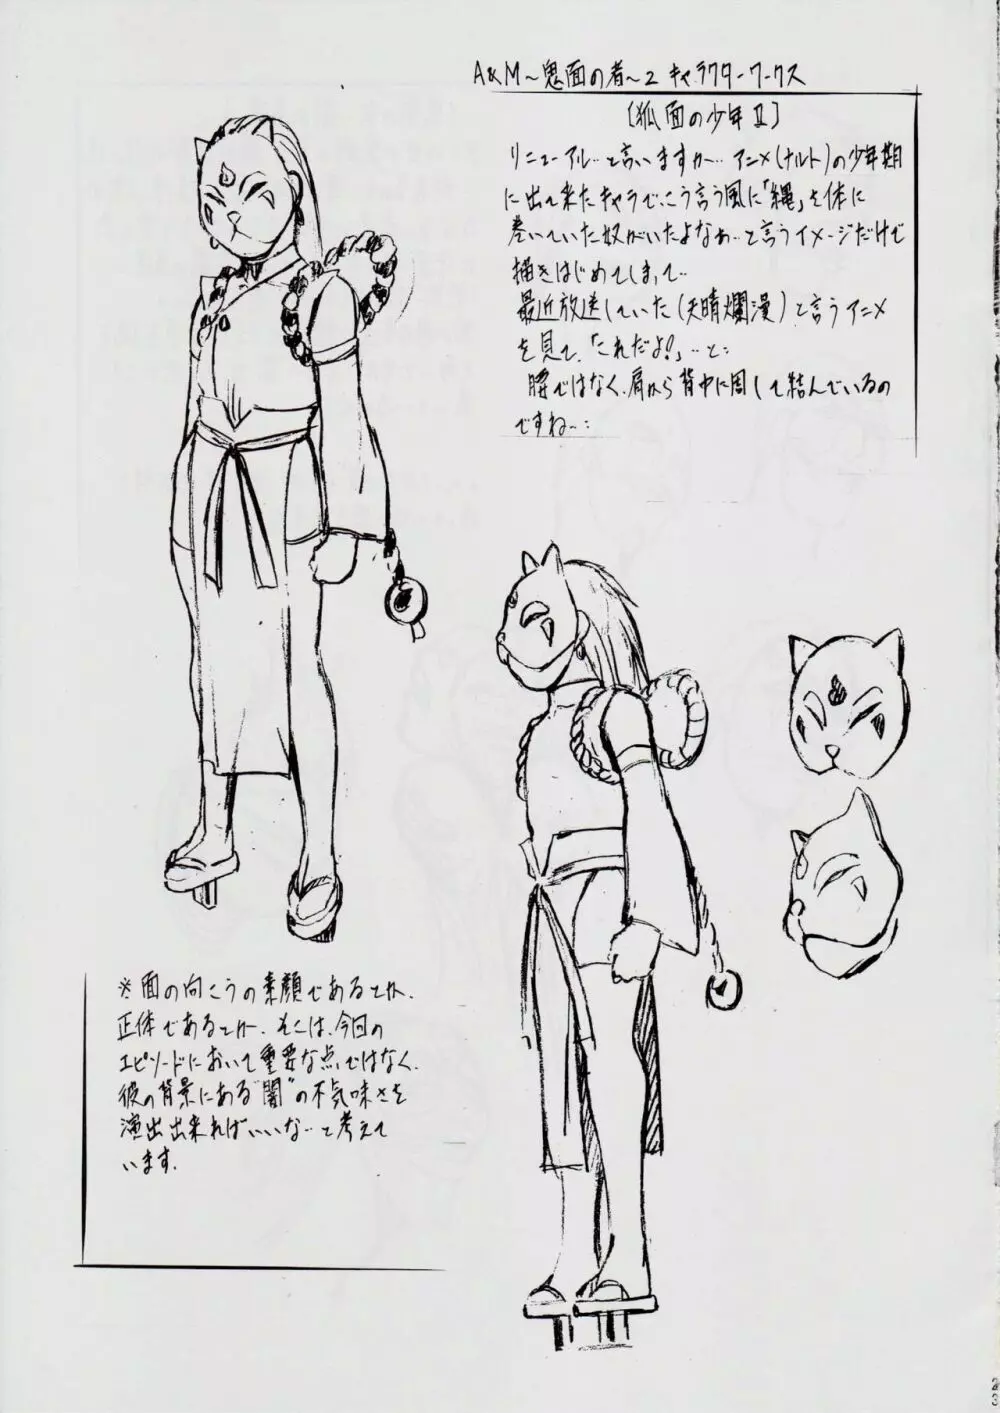 A&M～鬼面の者～2 キャラクターワークス
〔狐面の少年Ⅱ〕
リニューアル‥と言いますか‥アニメ(ナルト)の少年期
に出て来たキャラで、こう言う風に「縄」を体に
巻いていた奴がいたよなぁ‥と言うイメージだけで
描きはじめてしまって‥
最近放送していた(天晴爛漫)と言うアニメ
を見て、「これだよ!」‥と‥
腰ではなく、肩から背中に回して結んでいるの
ですね～‥
※面の向こうの素顔であるとか、
正体であるとか、そこは、今回の
エピソードにおいて重要な点ではなく、
彼の背景にある"闇"の不気味さを
演出出来ればいいな‥と考えて
います。
23